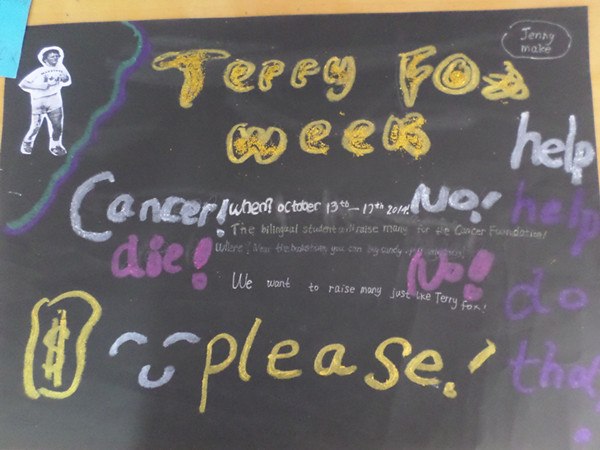 Jenny
make
Terry Fox
week
help
Cancer! When? october 13th—17th 2014. No!
The bilingual student will raise many for the Cancer Foundation!
help
die! Where? Near the bookstore, you can buy candy No!
We want to raise many just like Terry fox!
do
$ please!
that